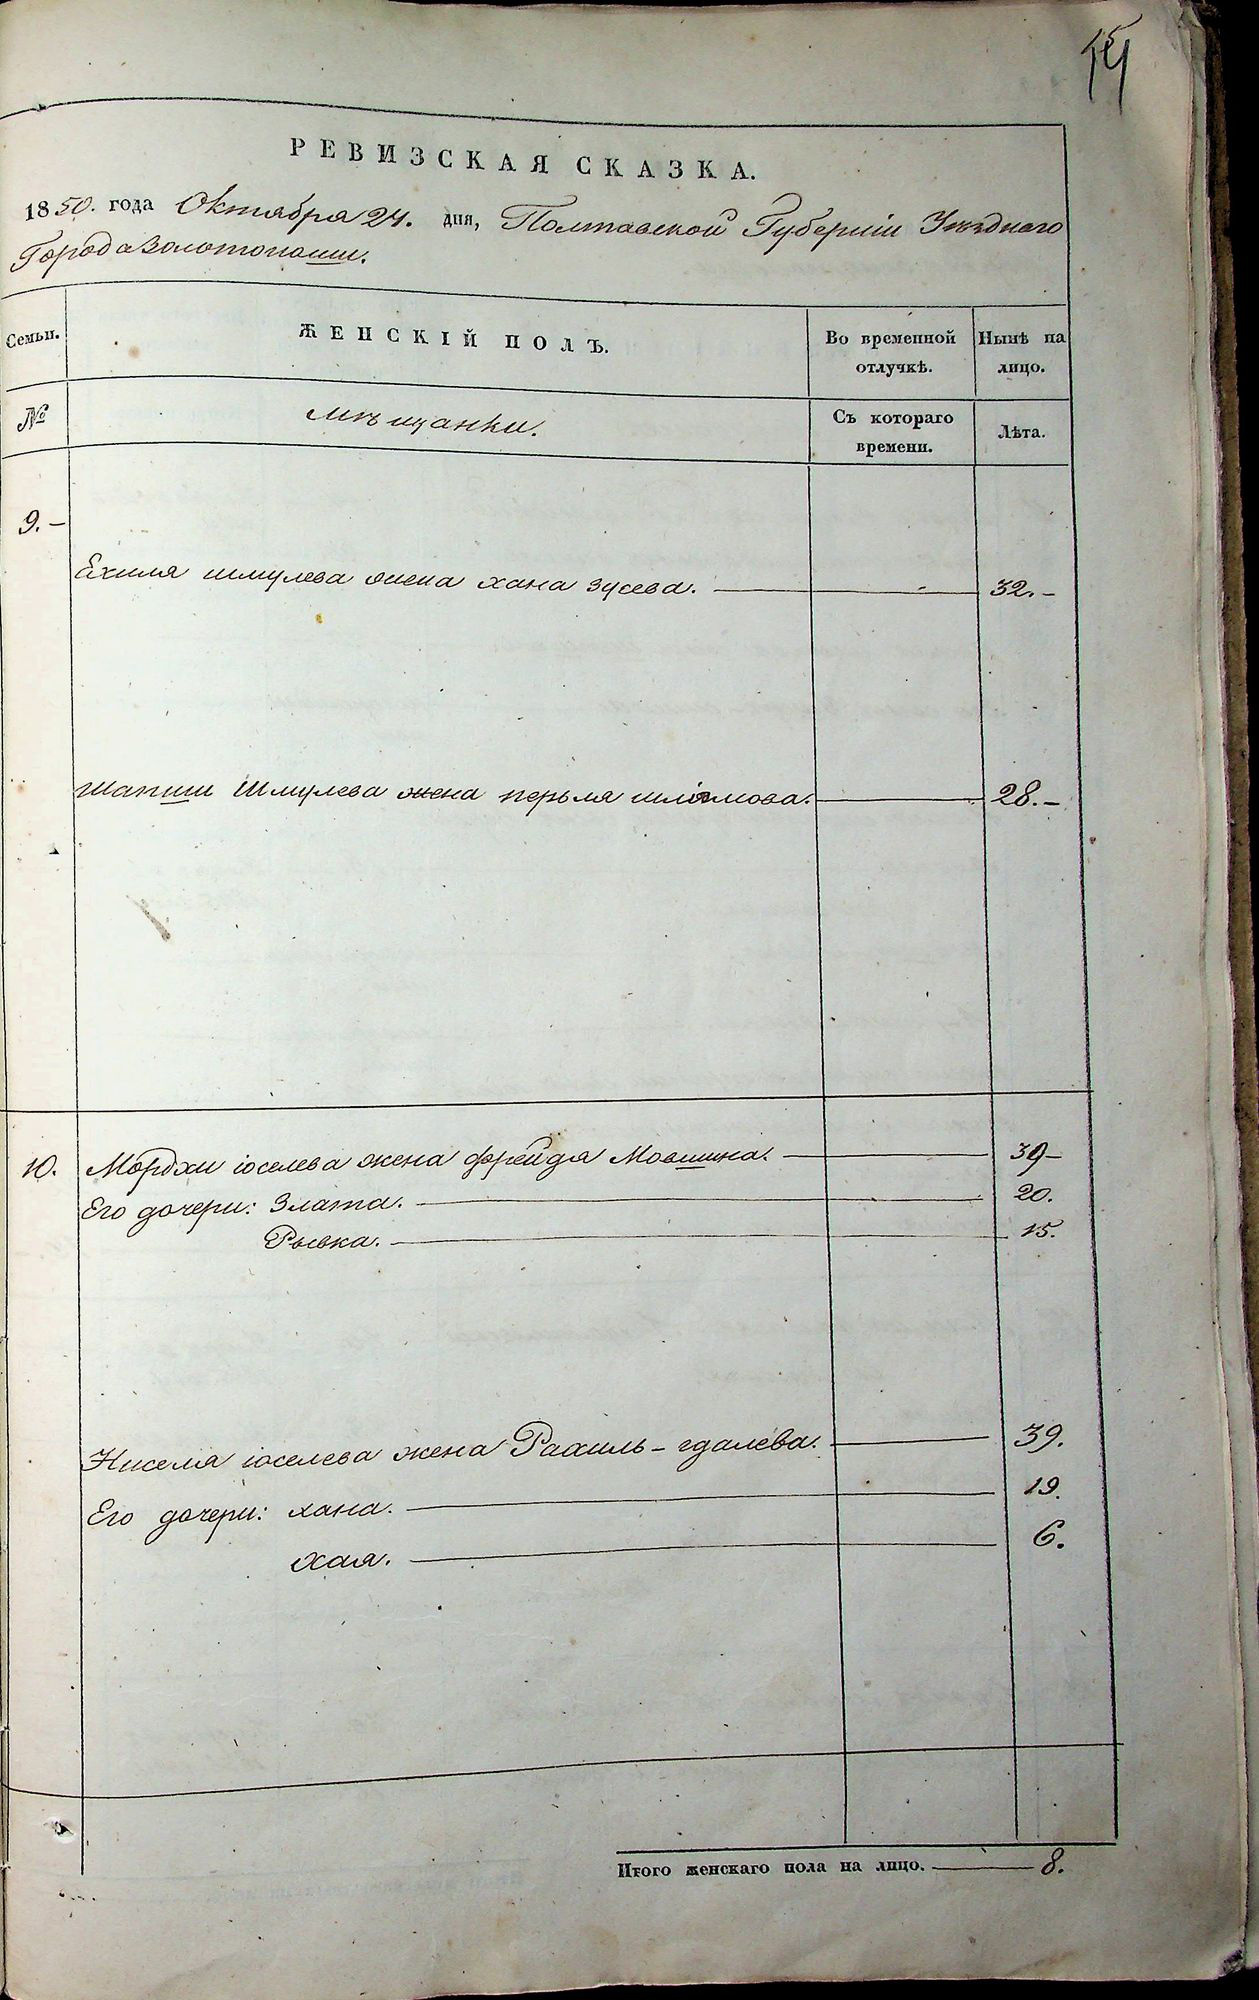 РЕВИЗСКАЯ СКАЗКА.
1850. года Октября 24. дня, Полтавской Губерніи Уѣзднаго
Города Золотоноши.
Семьи.
ЖЕНСКІЙ ПОЛЪ.
Во временной отлучкѣ.
Нынѣ на лицо.
№
мѣщанки.
Съ котораго времени.
Лѣта.
9.-
Ехиля шмулева жена хана зусева. 32.-
Шапши Шмулева жена перьля шлиомова. 28.-
10. Мордхи іоселева жена фрейдя Мовшина. 39-
Его дочери: Злата. 20.
Рывка. 15.
Ниселя іоселева жена Рахиль-гдалева. 39.
Его дочери: хана. 19.
хая. 6.
Итого женскаго пола на лицо. 8.